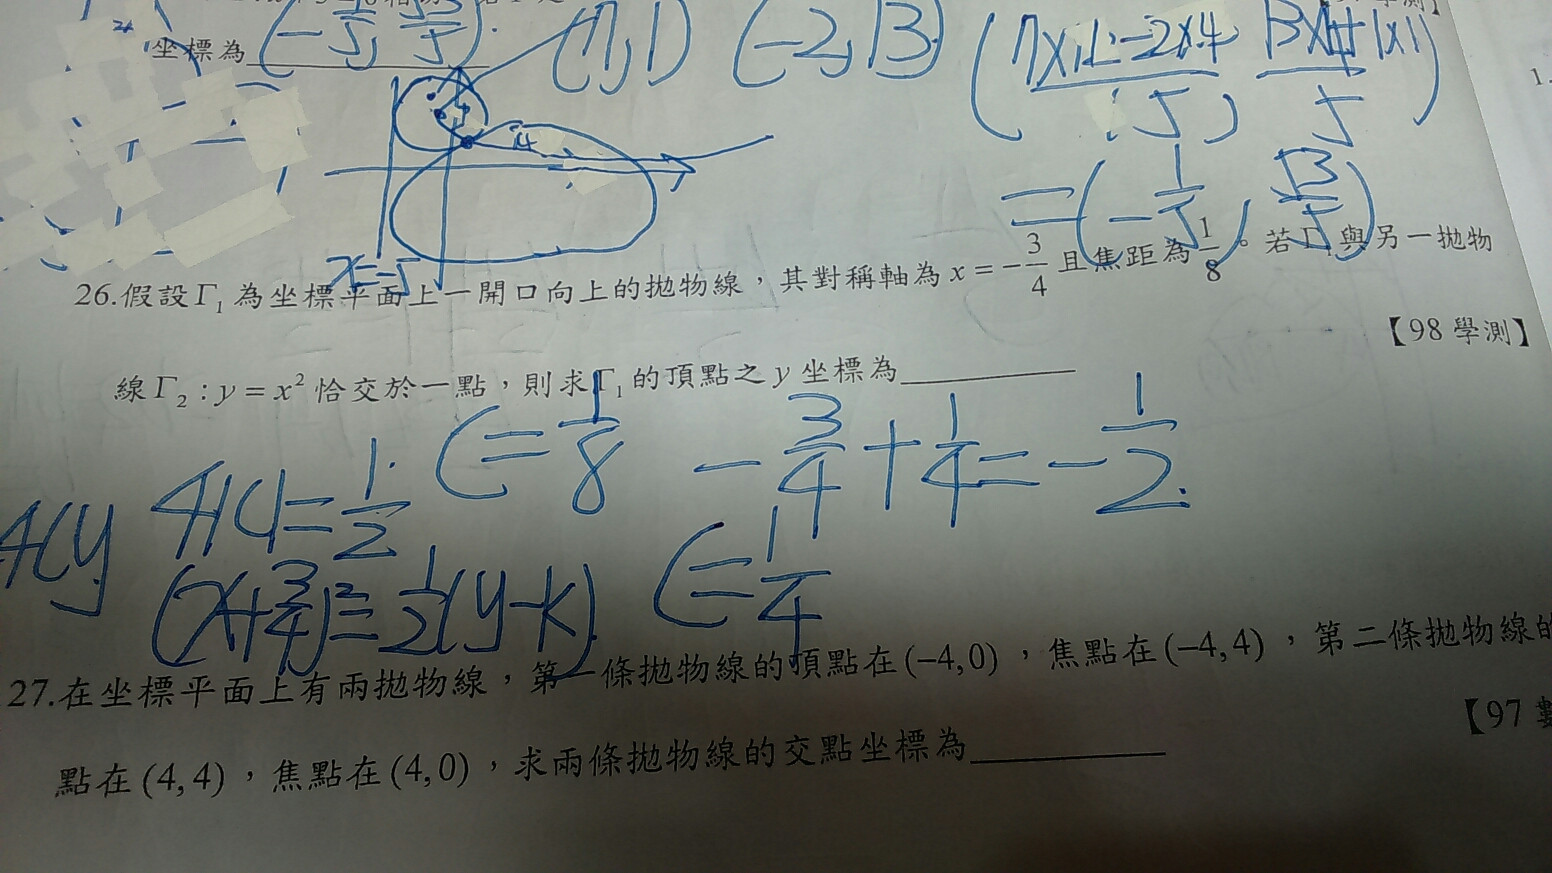 坐標為
(-1/5, 13/5).
(7,1) (-2,13)
= (-1/5, 13/5)
x=-5
26.假設Γ₁為坐標平面上一開口向上的拋物線，其對稱軸為 x = -3/4 且焦距為 1/8。若Γ₁與另一拋物
【98 學測】
線Γ₂ : y = x² 恰交於一點，則求Γ₁的頂點之 y 坐標為
4|c|=1/2. c=1/8 -3/4+1/4=-1/2.
4cy
(x+3/4)²=1/2(y-k). c=1/4
27.在坐標平面上有兩拋物線，第一條拋物線的頂點在(-4,0)，焦點在(-4,4)，第二條拋物線的
【97
點在(4,4)，焦點在(4,0)，求兩條拋物線的交點坐標為